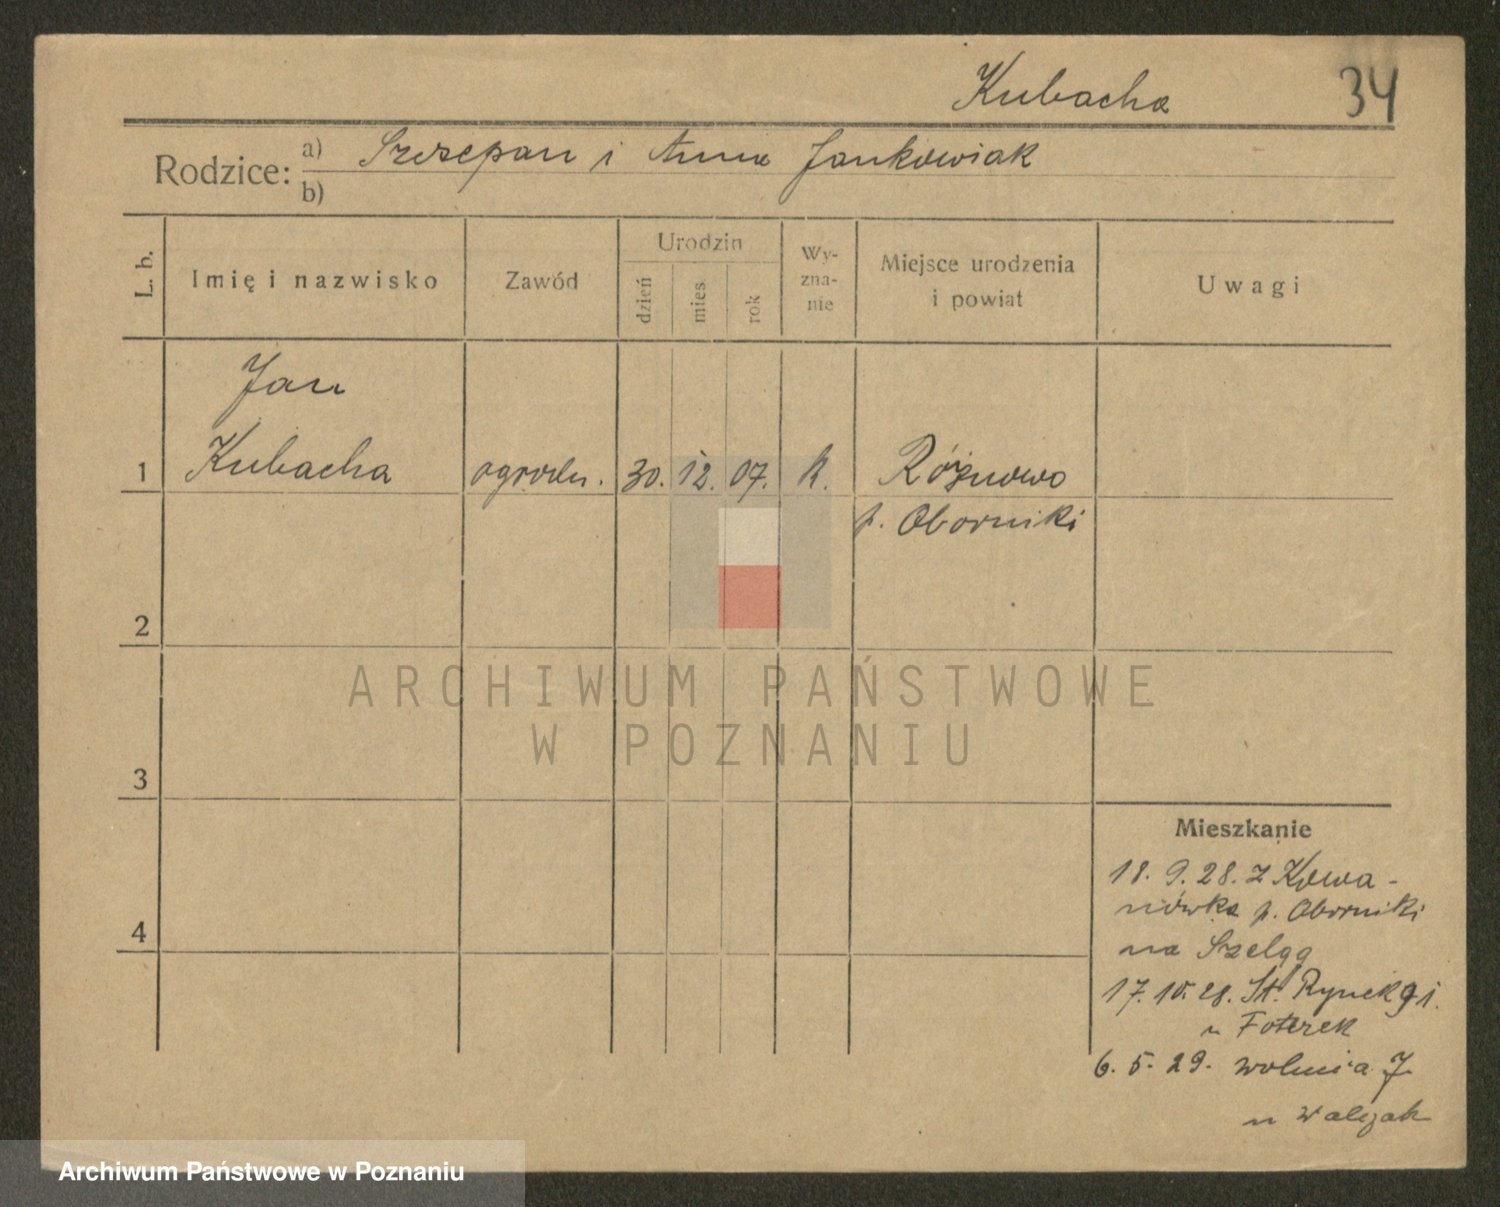 Kubacha 34
Rodzice: a) Szczepan i Anna Jankowiak
b)
L. b. Imię i nazwisko Zawód Urodzin dzień mies. rok Wy-zna-nie Miejsce urodzenia i powiat Uwagi
Jan
1 Kubacha ogrodn. 30. 12. 07. k. Różnowo
p. Oborniki
2
ARCHIWUM PAŃSTWOWE
W POZNANIU
3
Mieszkanie
18. 9. 28. z Kowa-
nówka p. Oborniki
4
na Szeląg
17. 10. 28. St. Rynek 91.
u Foterek
6. 5. 29. Wolnica 7
u Walczak
Archiwum Państwowe w Poznaniu